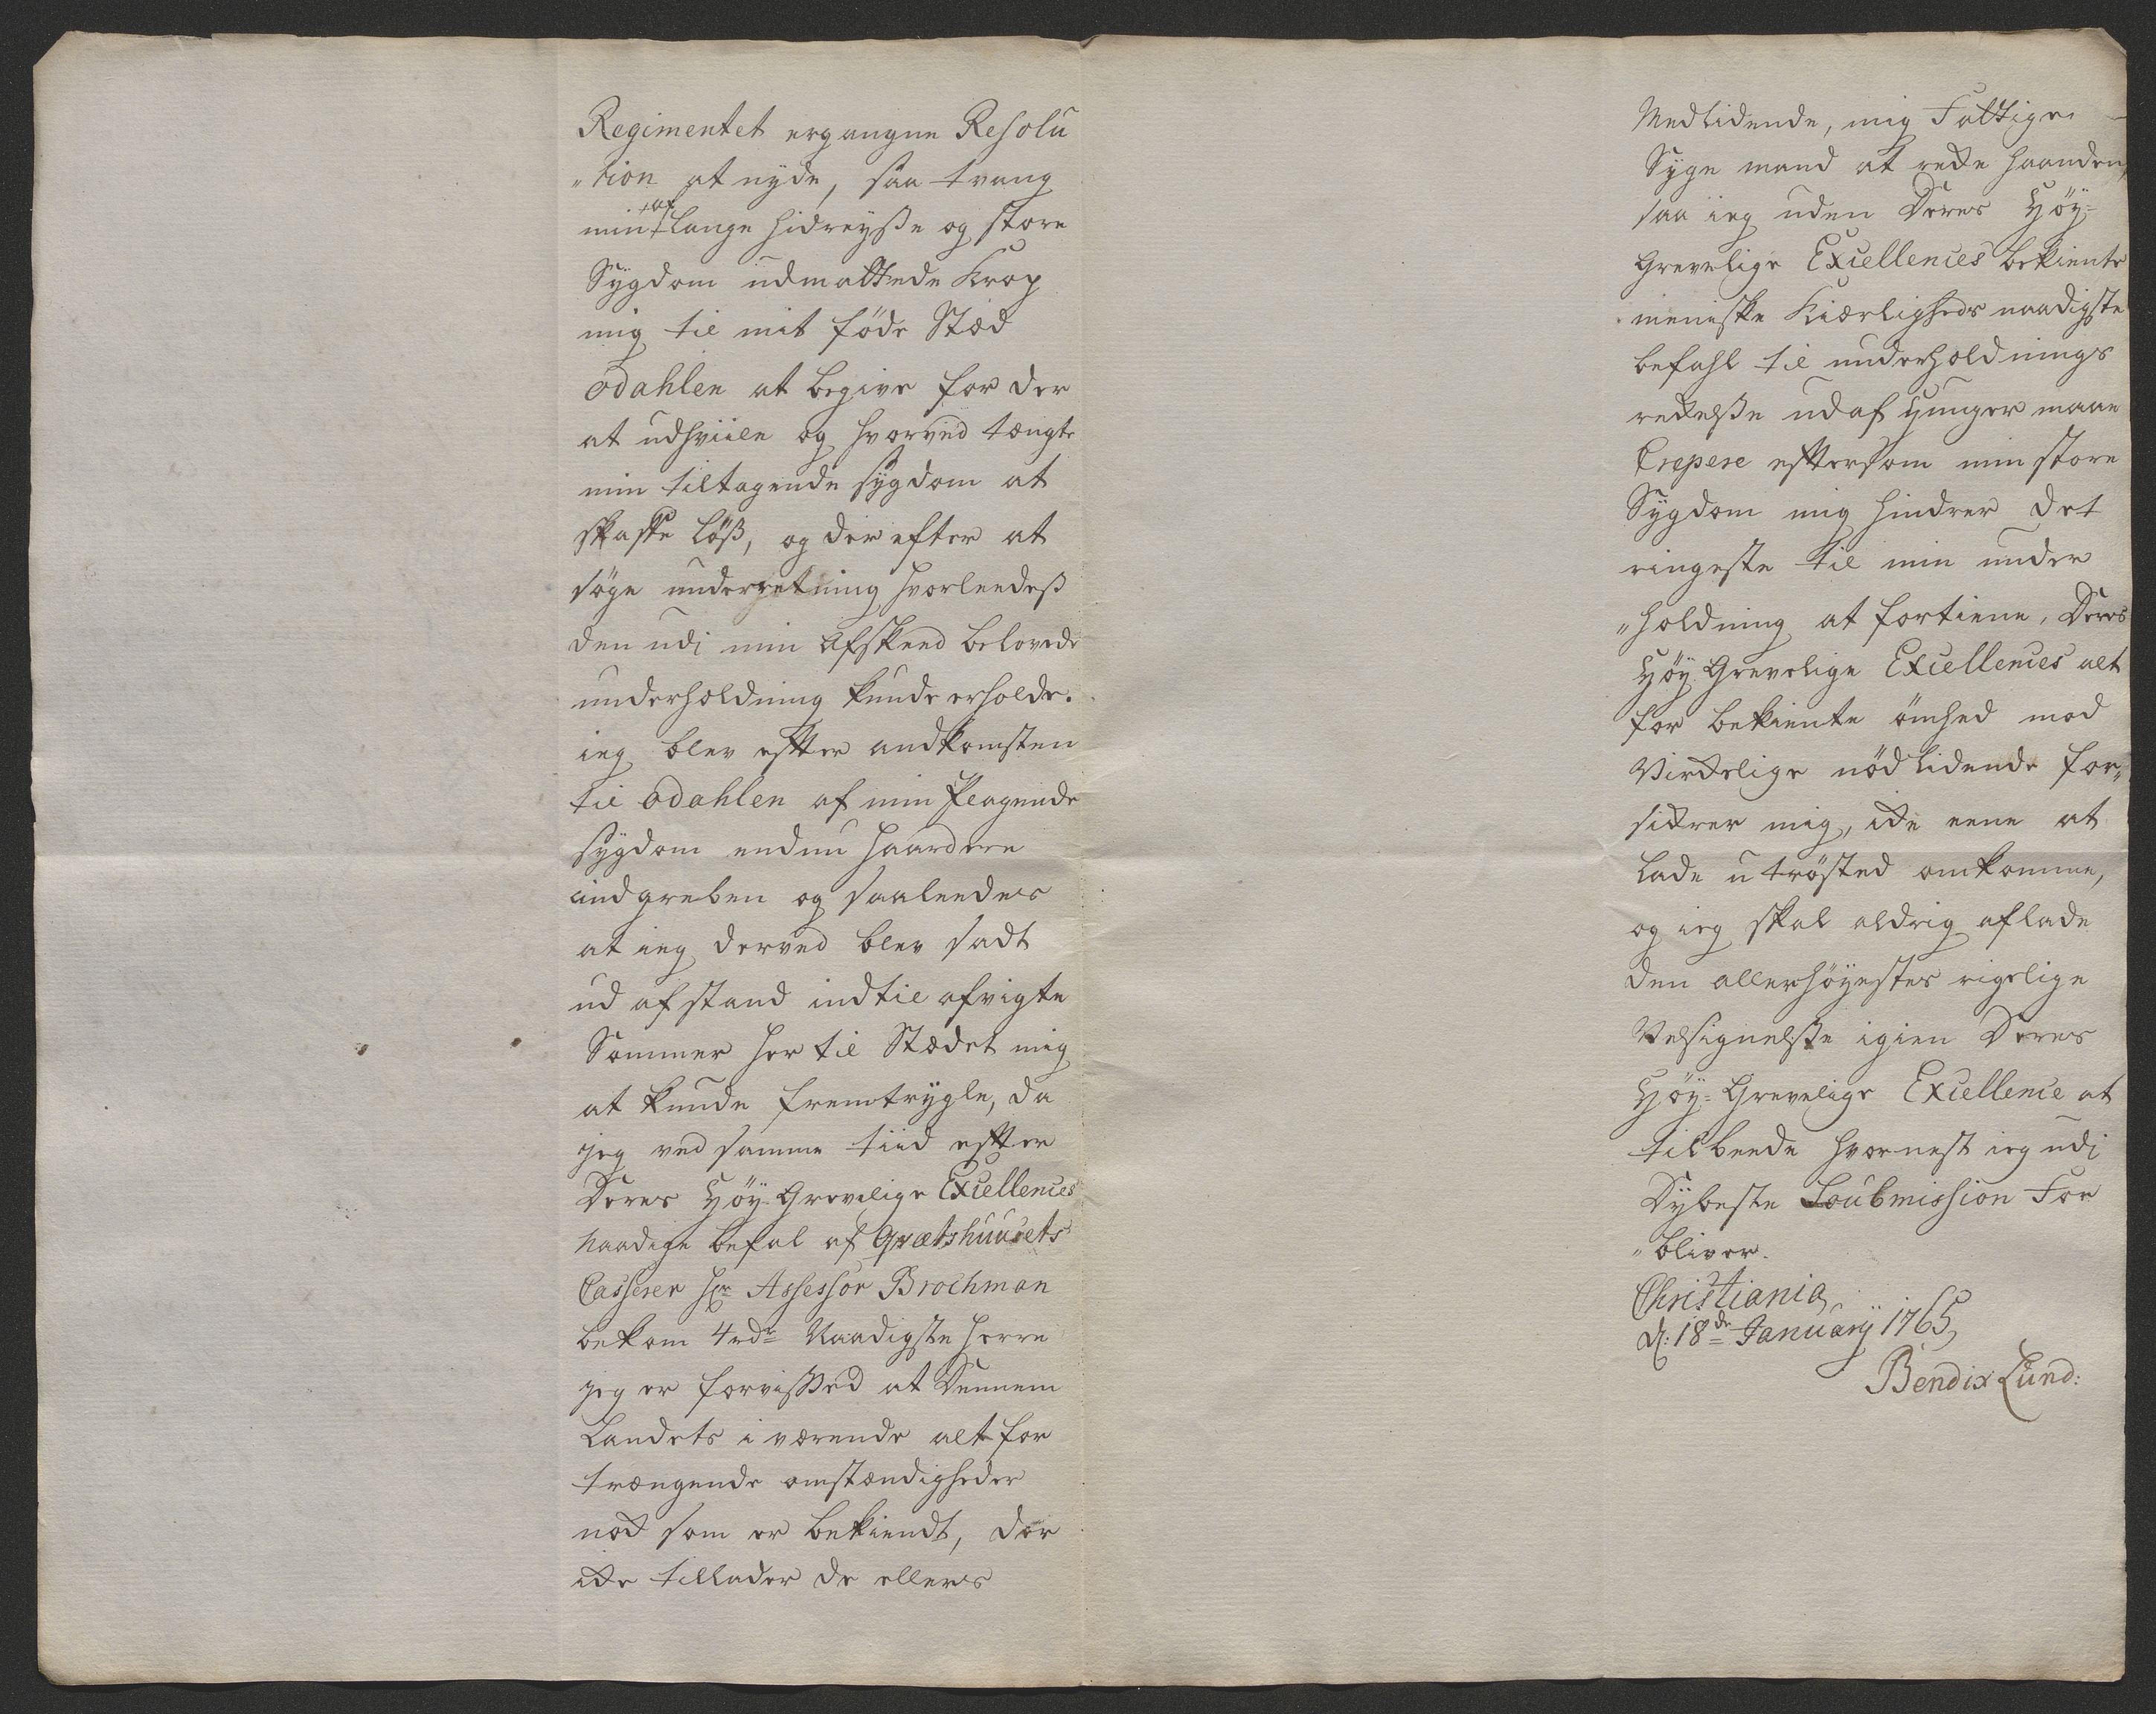 Regimentet ergangne Resolu
„tion at nyde, saa tvang
min +af lange hidreyße og store
Sygdom udmattede Krop
mig til mit føde Stæd
Odahlen at begive for der
at udhviile og hvorved tængte
min tiltagende sygdom at
skaffe løß, og der efter at
søge underretning hvorleedeß
den udi min Afskeed belovede
underholdning kunde erholde.
ieg blev efter andkomsten
til Odahlen af min Plagende
sygdom endnu haardere
andgreben og saaleedes
at ieg derved blev sadt
ud af stand indtil afvigte
Sommer her til Stædet mig
at kunde fremtrygle, da
jeg ved samme tiid efter
Deres Høy-Grevelige Excellences
Naadige befal af Qvæsthuusets
Casserer Hr Assessor Brochman
bekom 4 rdr Naadigste Herre
jeg er forvißed at Dennem
Landets i værende alt for
trængende omstændigheder
nok som er bekiendt, der
ikke tillader de ellers
Medlidende, mig Fattige
Syge mand at rekke haanden,
saa ieg uden Deres Høy-
Grevelige Excellences bekiente
meniske Kiærligheds naadigste
befahl til underholdnings
rekkelße ud af Hunger maae
Crepere eftersom min store
Sygdom mig hindrer det
ringeste til min under
„holdning at fortiene, Deres
Høy-Grevelige Excellences alt
for bekiente ømhed mod
Virkelige nødlidende for„
sikrer mig, ikke eene at
lade utrøsted omkomme,
og ieg skal aldrig aflade
den allerhøyestes rigelige
Velsignelße igien Deres
Høy-Grevelige Excellence at
tilbeede hvornest ieg udi
Dybeste Soubmission For
„bliver.
Christiania
d: 18de Januarij 1765
Bendix Lund: